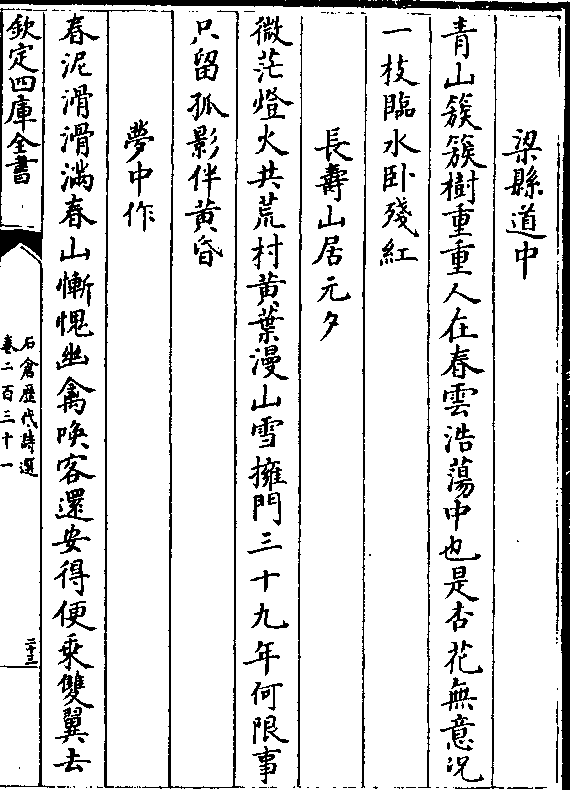 梁縣道中
青山簇簇樹重重人在春雲浩蕩中也是杏花無意況
一枝臨水卧殘紅
長壽山居元夕
微茫燈火共荒村黄葉漫山雪擁門三十九年何限事
只留孤影伴黄昏
夢中作
春泥滑滑滿春山慚愧幽禽喚客還安得便乘雙翼去
欽定四庫全書
石倉歴代詩選
卷二百三十一
二十三